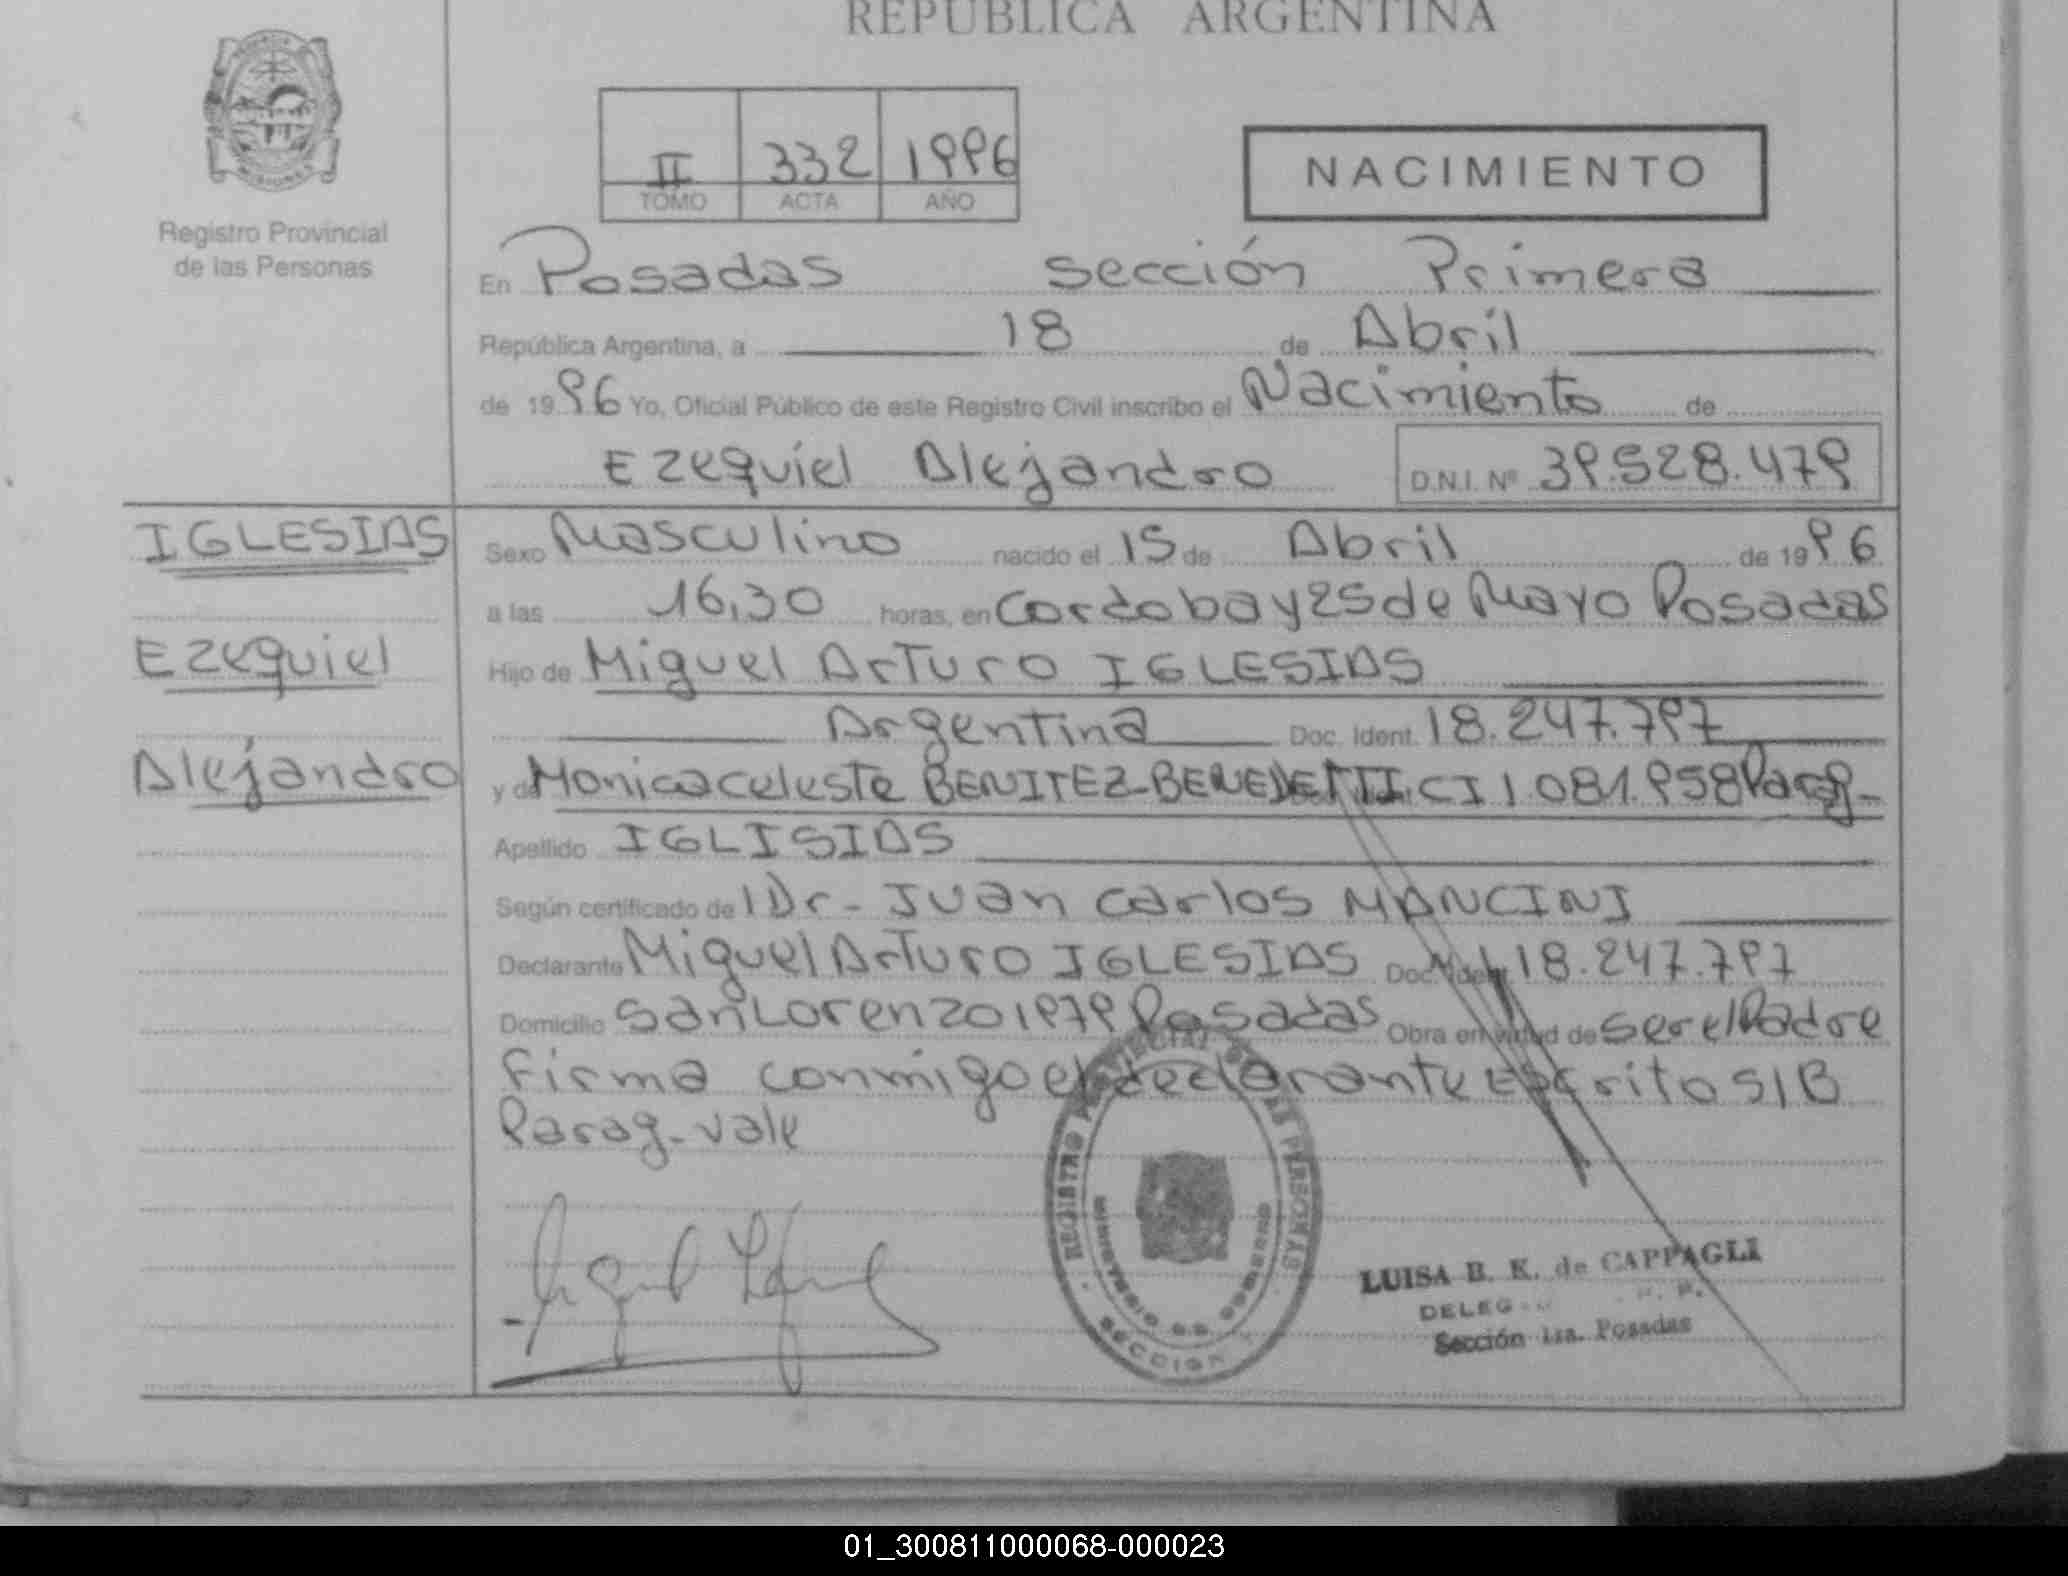 REPUBLICA ARGENTINA
MISIONES
Registro Provincial
de las Personas
II 332 1996
TOMO ACTA AÑO
NACIMIENTO
En Posadas Sección Primera
República Argentina, a 18 de Abril
de 1996 Yo, Oficial Público de este Registro Civil inscribo el Nacimiento de
Ezequiel Alejandro D.N.I. Nº 39.528.479
IGLESIAS
Ezequiel
Alejandro
Sexo Masculino nacido el 15 de Abril de 1996
a las 16,30 horas, en Cordoba y 25 de Mayo Posadas
Hijo de Miguel Arturo IGLESIAS
Argentina Doc. Ident. 18.247.797
y de Monica celeste BENITEZ-BENEDETTI CI 1081.958 Parag-
Apellido IGLISIAS
Según certificado de l Dr- Juan Carlos MANCINI
Declarante Miguel Arturo IGLESIAS Doc. Ident. 18.247.797
Domicilio San Lorenzo 1979 Posadas Obra en virtud de ser el Padre
Firma conmigo el declarante Escrito S/B
Parag-vale
REGISTRO PROVINCIAL DE LAS PERSONAS
MINISTERIO DE GOBIERNO
SECCION
LUISA B. K. de CAPPAGLI
Sección 1ra. Posadas
01_300811000068-000023